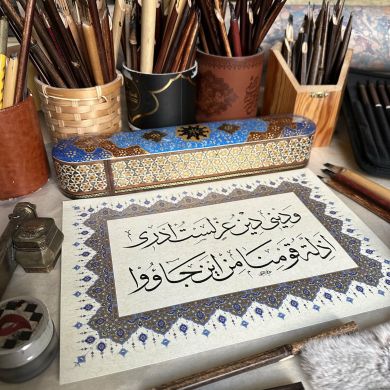 وديني دين عز لست أدري
أذلة قومنا من أين جاؤوا